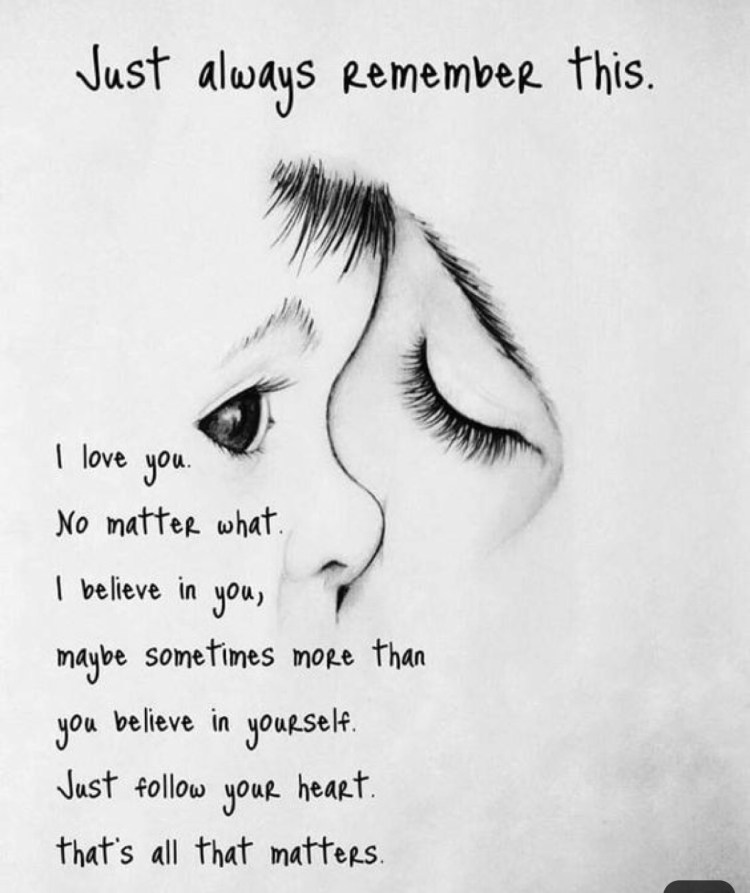 Just always remember this.
I love you.
No matter what.
I believe in you,
maybe sometimes more than
you believe in yourself.
Just follow your heart.
that's all that matters.